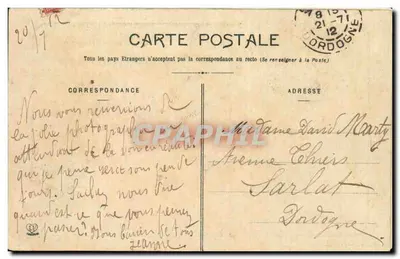 20/7 12
CARTE POSTALE
Tous les pays Etrangers n'acceptent pas la correspondance au recto (Se renseigner à la Poste)
21-7
12
DORDOGNE
CORRESPONDANCE
ADRESSE
Nous vous remercions de
la photographie en
attendant de la voir
que je pense
nous dire
quand est ce que vous pensez
passer. Nous baisers de tous
Jeanne
Madame David Marty
Avenue Thiers
Sarlat
Dordogne
CPARAMA